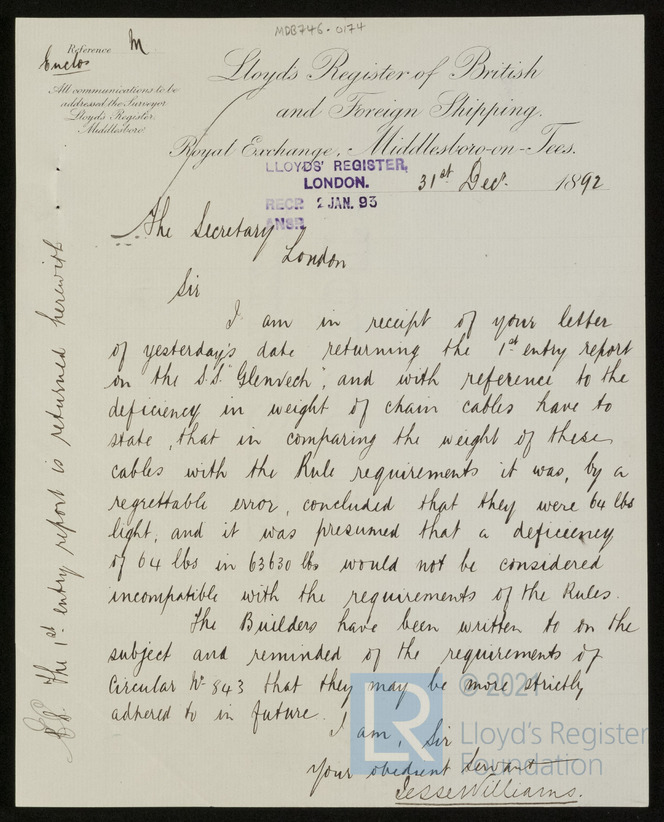 MDB746-0174
Reference M
Enclos
All communications to be
addressed the Surveyor
Lloyd's Register.
Middlesbro'
Lloyd's Register of British
and Foreign Shipping.
Royal Exchange, Middlesboro-on-Tees.
LLOYDS' REGISTER,
LONDON.
RECD 2 JAN. 93
ANSD
31st Decr. 1892
The Secretary
London
Sir
I am in receipt of your letter
of yesterday's date returning the 1st entry report
on the S.S. "Glenvech", and with reference to the
deficiency in weight of chain cables have to
state, that in comparing the weight of these
cables with the Rule requirements it was, by a
regrettable error, concluded that they were 64 lbs
light, and it was presumed that a deficiency
of 64 lbs in 63630 lbs would not be considered
incompatible with the requirements of the Rules.
The Builders have been written to on the
subject and reminded of the requirements of
Circular No 843 that they may be more strictly
adhered to in future.
I am, Sir
Your obedient Servant
Jesse Williams.
The 1st entry report is returned herewith
LR
© 2021
Lloyd's Register
Foundation